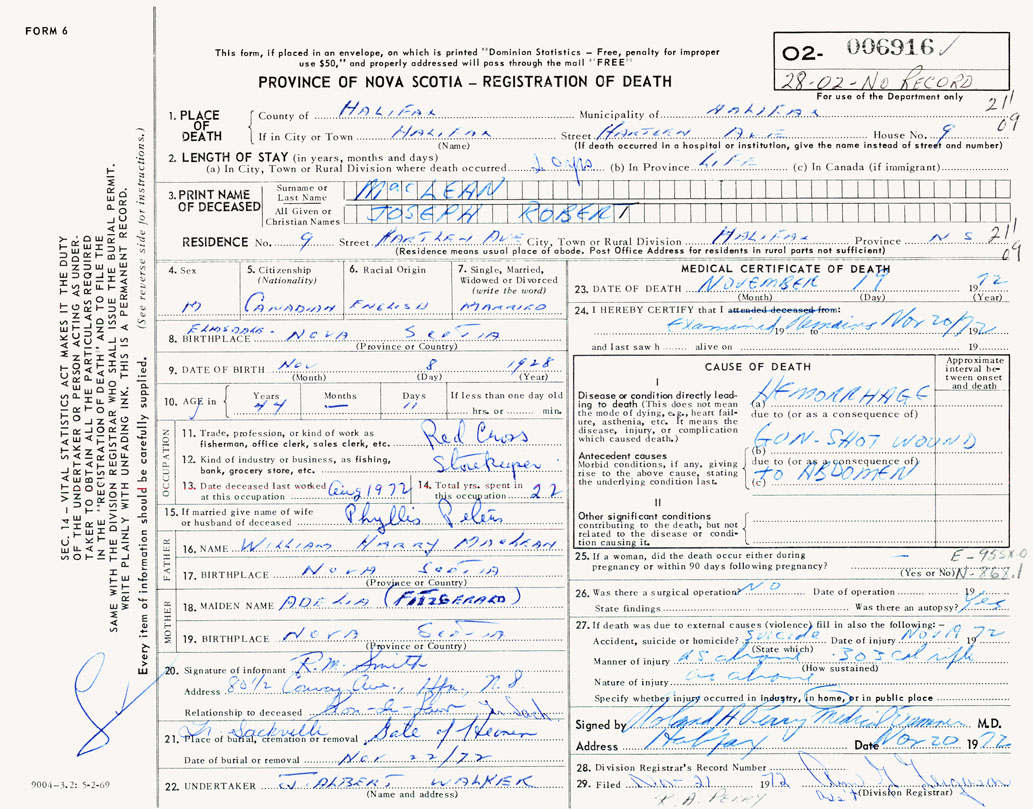 FORM 6
This form, if placed in an envelope, on which is printed "Dominion Statistics – Free, penalty for improper
use $50," and properly addressed will pass through the mail "FREE"
PROVINCE OF NOVA SCOTIA – REGISTRATION OF DEATH
O2- 006916 ✓
28-02-No RECORD
For use of the Department only
211
09
1. PLACE OF DEATH
County of HALIFAX Municipality of HALIFAX
If in City or Town HALIFAX Street HARTLEN AVE House No. 9
(Name) (If death occurred in a hospital or institution, give the name instead of street and number)
2. LENGTH OF STAY (in years, months and days)
(a) In City, Town or Rural Division where death occurred yrs (b) In Province LIFE (c) In Canada (if immigrant)
3. PRINT NAME OF DECEASED
Surname or Last Name MacLEAN
All Given or Christian Names JOSEPH ROBERT
RESIDENCE No. 9 Street HARTLEN AVE City, Town or Rural Division HALIFAX Province N S
(Residence means usual place of abode. Post Office Address for residents in rural parts not sufficient)
211
09
4. Sex
M
5. Citizenship (Nationality)
CANADIAN
6. Racial Origin
ENGLISH
7. Single, Married, Widowed or Divorced (write the word)
MARRIED
8. BIRTHPLACE ELMSDALE - NOVA SCOTIA
(Province or Country)
9. DATE OF BIRTH Nov 8 1928
(Month) (Day) (Year)
10. AGE in Years Months Days If less than one day old
44 — 11 hrs. or min.
OCCUPATION
11. Trade, profession, or kind of work as fisherman, office clerk, sales clerk, etc. Red Cross
12. Kind of industry or business, as fishing, bank, grocery store, etc. Storekeeper
13. Date deceased last worked at this occupation Aug 1972
14. Total yrs. spent in this occupation 22
15. If married give name of wife or husband of deceased Phyllis Peters
FATHER
16. NAME WILLIAM HARRY MACLEAN
17. BIRTHPLACE NOVA SCOTIA
(Province or Country)
MOTHER
18. MAIDEN NAME ADELIA (FITZGERALD)
19. BIRTHPLACE NOVA SCOTIA
(Province or Country)
20. Signature of informant R.M. Smith
Address 80 1/2 Convoy Ave., Hfx, N.S
Relationship to deceased Son-in-Law
21. Place of burial, cremation or removal Sackville Gate of Heaven
Date of burial or removal Nov 22/72
22. UNDERTAKER J. ALBERT WALKER
(Name and address)
MEDICAL CERTIFICATE OF DEATH
23. DATE OF DEATH NOVEMBER 19 1972
(Month) (Day) (Year)
24. I HEREBY CERTIFY that I attended deceased from:
Examined 19 Remains to Nov 20/72 19
and last saw h alive on 19
CAUSE OF DEATH
Approximate interval between onset and death
I
Disease or condition directly leading to death (This does not mean the mode of dying, e.g., heart failure, asthenia, etc. It means the disease, injury, or complication which caused death.)
(a) HEMORRHAGE
due to (or as a consequence of)
Antecedent causes
Morbid conditions, if any, giving rise to the above cause, stating the underlying condition last.
(b) GUN-SHOT WOUND
due to (or as a consequence of)
(c) TO ABDOMEN
II
Other significant conditions contributing to the death, but not related to the disease or condition causing it.
25. If a woman, did the death occur either during pregnancy or within 90 days following pregnancy? —
(Yes or No)
E-955X0
N-868.1
26. Was there a surgical operation? NO Date of operation 19
State findings Was there an autopsy? Yes
27. If death was due to external causes (violence) fill in also the following:–
Accident, suicide or homicide? Suicide Date of injury Nov 19 1972
(State which)
Manner of injury as above .303 cal rifle
(How sustained)
Nature of injury as above
Specify whether injury occurred in industry, in home, or in public place
Signed by Perry Medical Examiner M.D.
Address Halifax Date Nov 20 1972
28. Division Registrar's Record Number
29. Filed Nov-21 1972 Ferguson
(Division Registrar)
K. A. PERRY
SEC. 14 – VITAL STATISTICS ACT MAKES IT THE DUTY
OF THE UNDERTAKER OR PERSON ACTING AS UNDER-
TAKER TO OBTAIN ALL THE PARTICULARS REQUIRED
IN THE "REGISTRATION OF DEATH" AND TO FILE THE
SAME WITH THE DIVISION REGISTRAR WHO SHALL ISSUE THE BURIAL PERMIT.
WRITE PLAINLY WITH UNFADING INK. THIS IS A PERMANENT RECORD.
Every item of information should be carefully supplied. (See reverse side for instructions.)
9004-3.2: 5-2-69